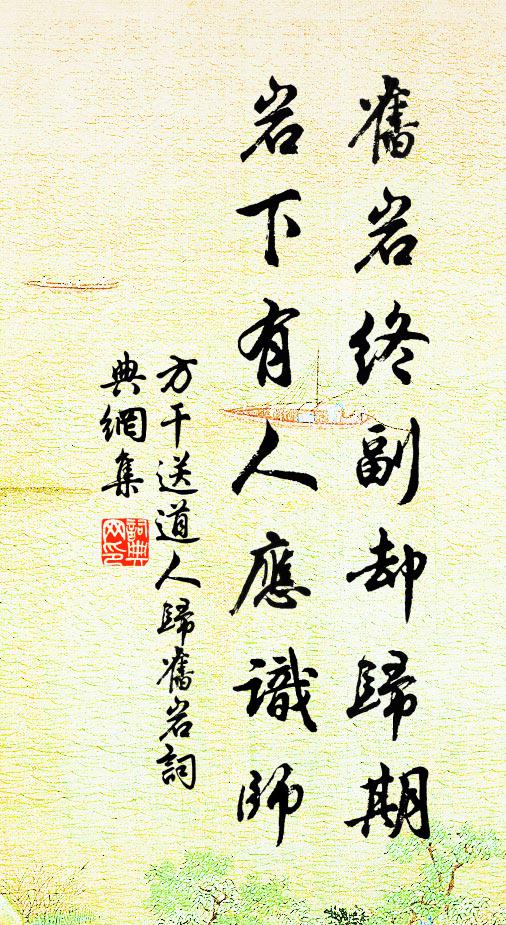 舊岩終副却歸期
岩下有人應識師
方干送道人歸舊岩詞
典網集
詞典网印